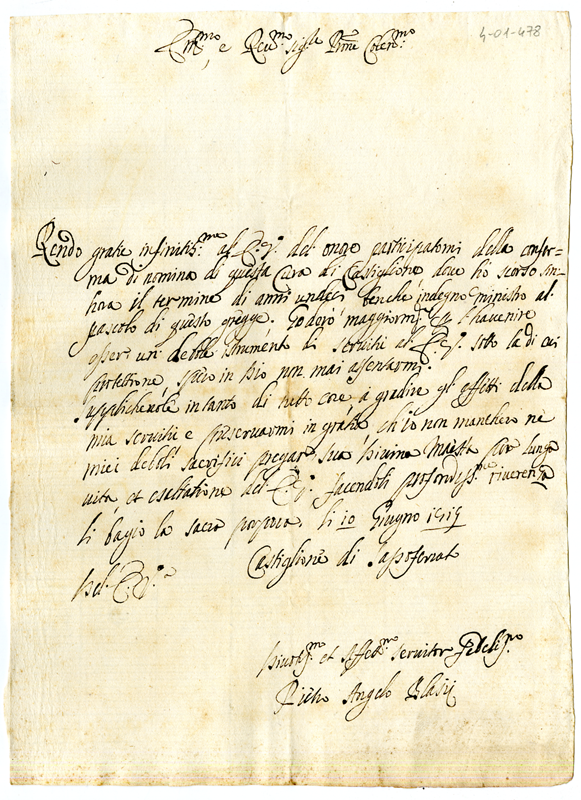 4-01-478
Em.mo e Reu.mo Sig.re Prone Colen.mo
Rendo gratie infinitis.me al E.V. del onore participatomi della confer-
ma di nomina di questa Cura di Castiglione doue ho scorso sin-
hora il termine di anni undeci benche indegno ministro al
pascolo di questo gregge. Godorò maggiorm.te l'hauenire
esser un debbile strumento di seruire al E.V. sotto la di cui
protettione, spero in Dio non mai assentarmi.
supplicheuole intanto di tutto core à gradire gl'effetti della
mia seruitù e preseruarmi in gratia ch'io non manchero ne
miei deboli sacrifici pregar sua Diuina Maestà per lunga
uita, et esaltatione del E.V. facendoli profondiss.ma riuerenza
li bagio la sacra porpora. li 10 Giugno 1715
Castiglione di Sassoferrat
Del E.V.
Diuotis.mo et Affet.mo seruitor fideliss.mo
Pietro Angelo Blasij